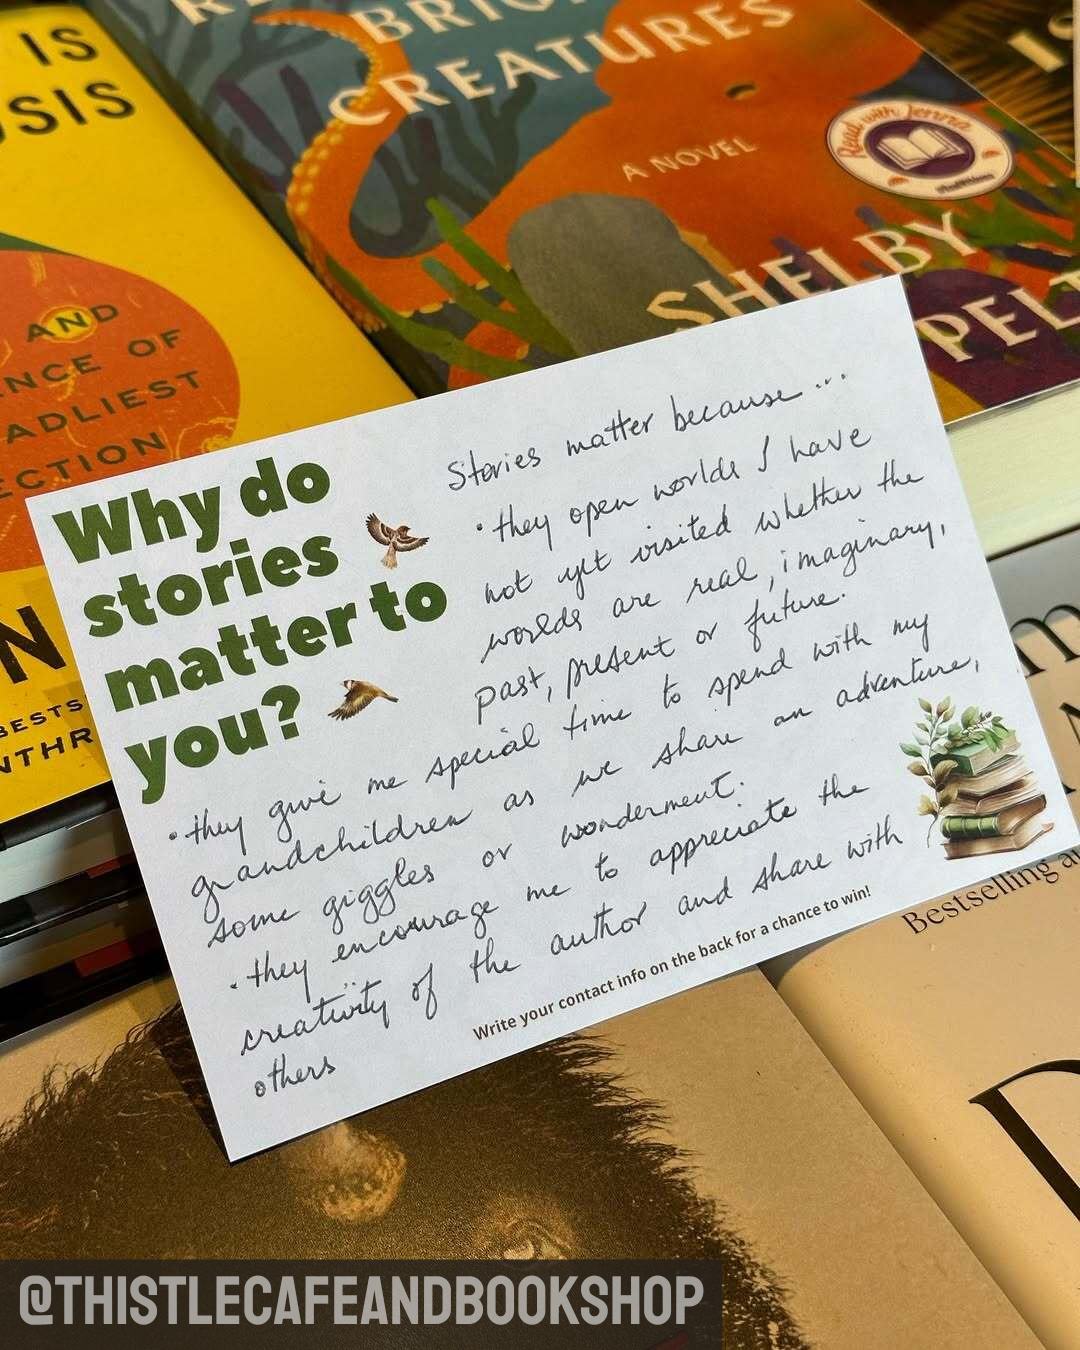 IS
OSIS
AND
NCE OF
EADLIEST
ECTION
N
BESTS
NTHR
RE
BRIGHT
CREATURES
A NOVEL
Read with Jenna
SHELBY
PELT
IS
Why do
stories
matter to
you?
Stories matter because ...
• they open worlds I have
not yet visited whether the
worlds are real, imaginary,
past, present or future.
• they give me special time to spend with my
grandchildren as we share an adventure,
some giggles or wonderment.
• they encourage me to appreciate the
creativity of the author and share with
others
Write your contact info on the back for a chance to win!
Bestselling a
D
@THISTLECAFEANDBOOKSHOP